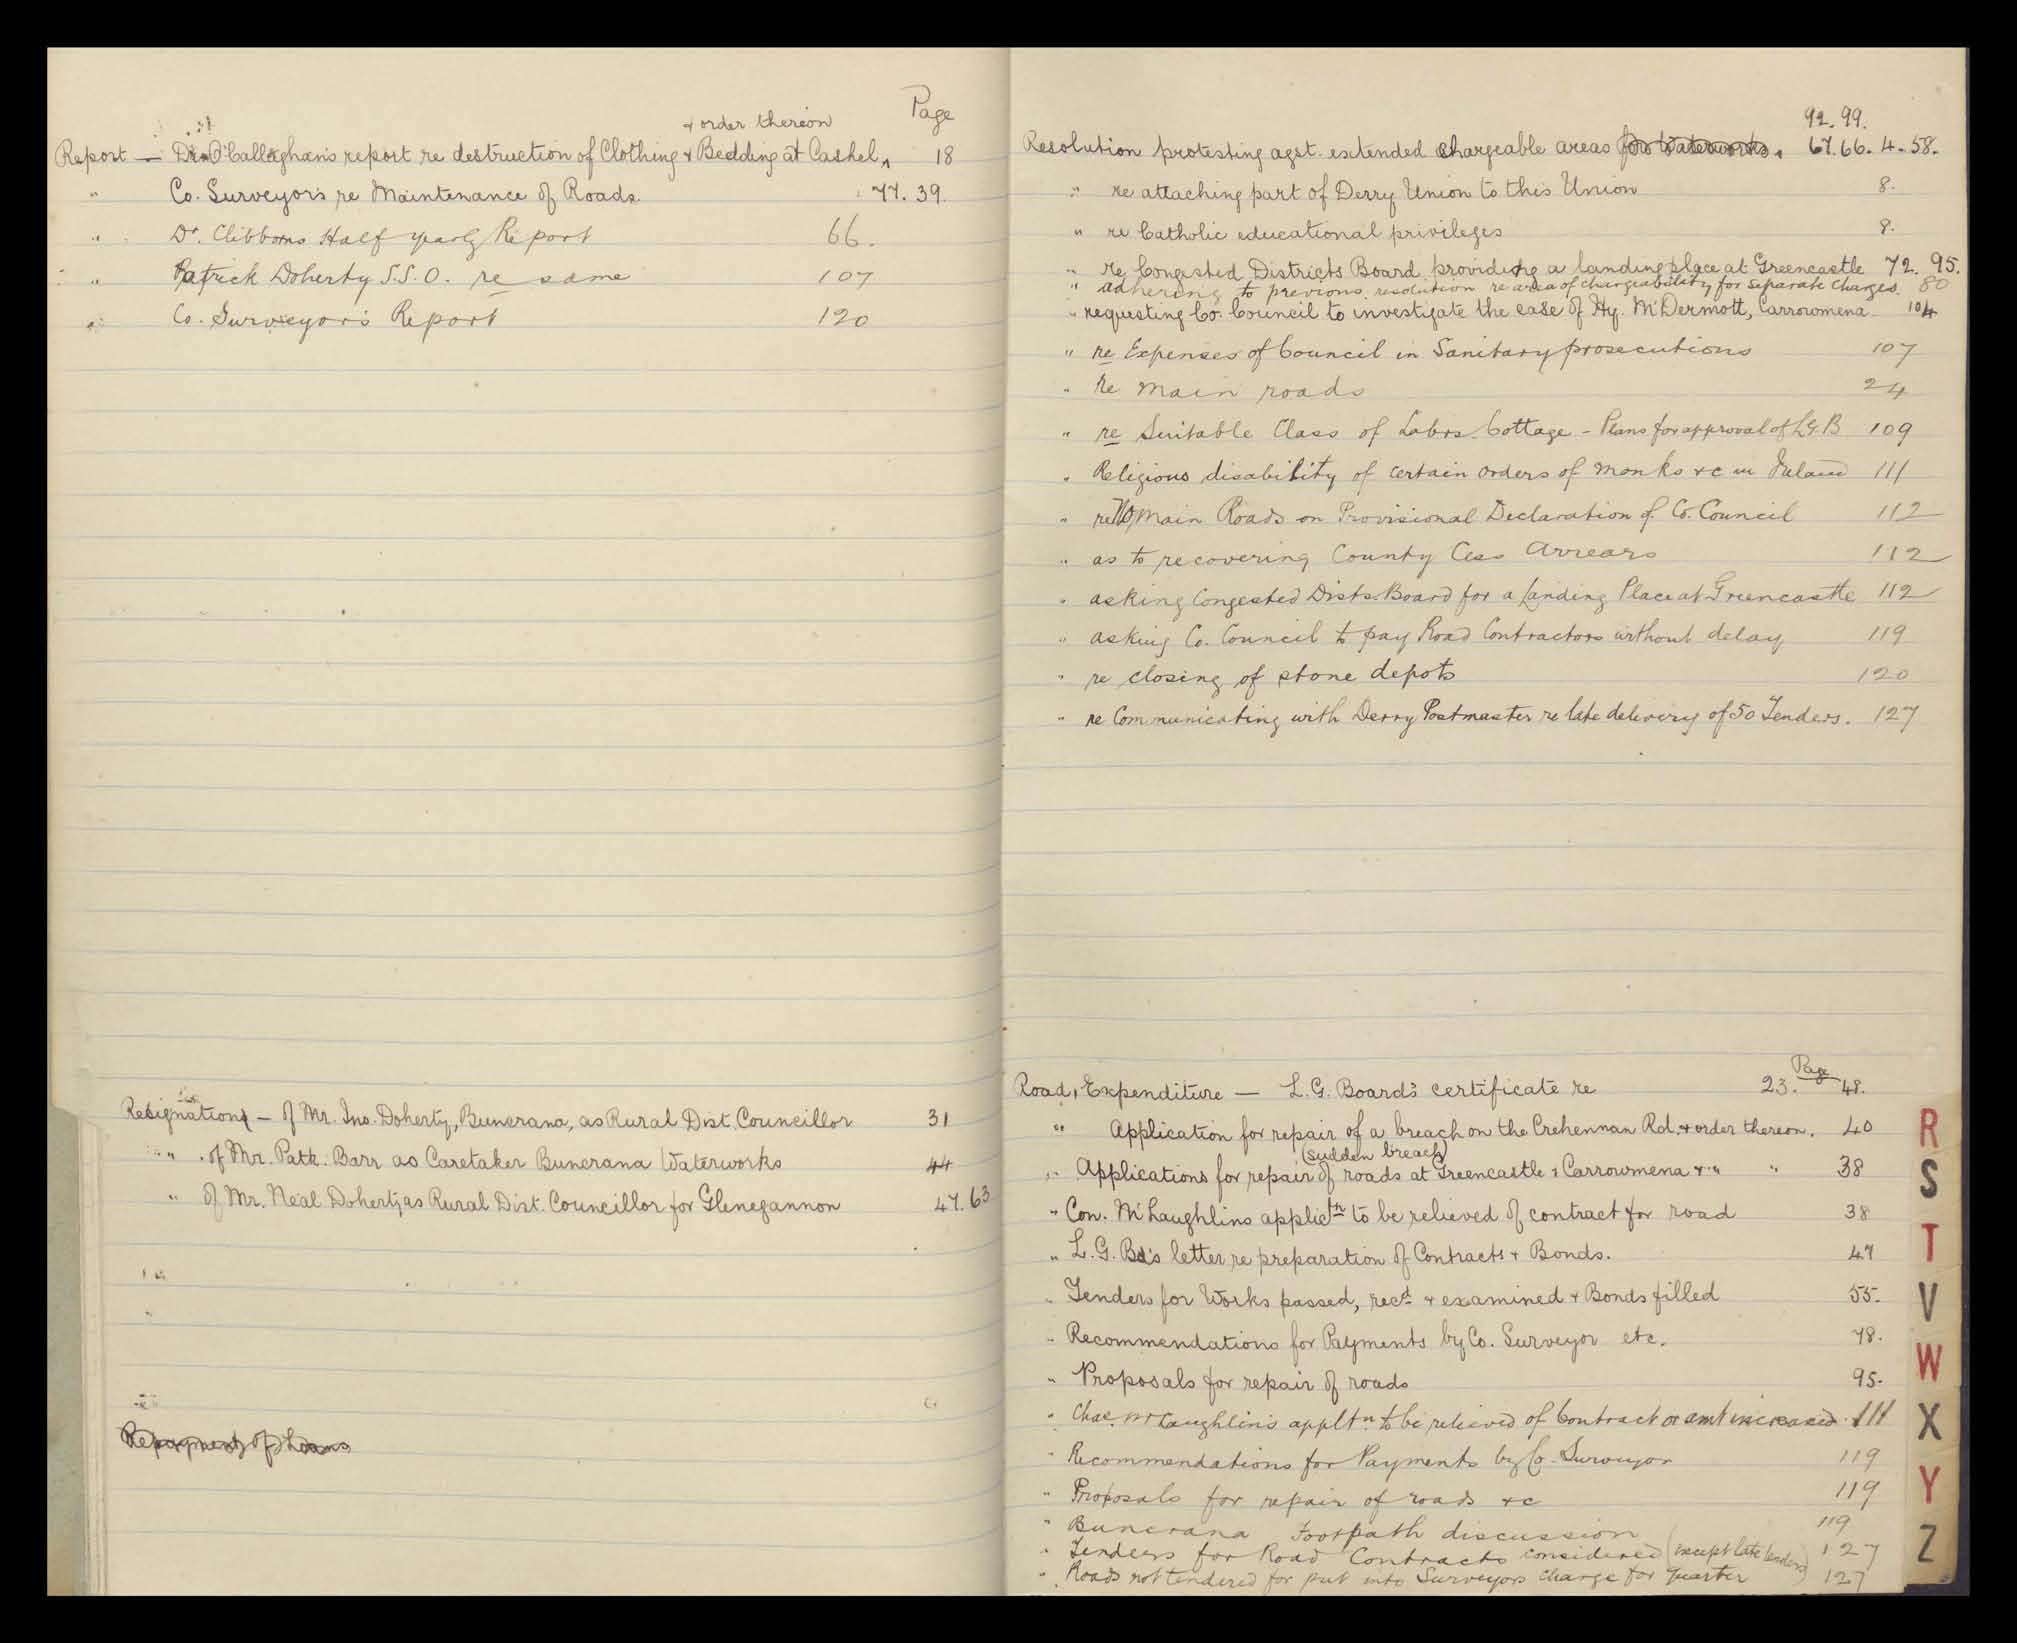 Page
& order thereon
Report — Dr. O'Callaghan's report re destruction of Clothing & Bedding at Cashel ^ 18
" Co. Surveyor's re Maintenance of Roads. 77. 39.
" Dr. Clibborns Half yearly Report 66.
" Patrick Doherty S.S.O. re same 107
" Co. Surveyor's Report 120
Resignations — of Mr. Jno. Doherty, Buncrana, as Rural Dist. Councillor 31
" of Mr. Patk. Barr as Caretaker Buncrana Waterworks 44
" of Mr. Neal Doherty, as Rural Dist. Councillor for Glenegannon 47. 63
Repayment of Loans
92. 99.
Resolution protesting agst. extended chargeable areas for Waterworks ^ 67. 66. 4. 58.
" re attaching part of Derry Union to this Union 8.
" re Catholic educational privileges 8.
" re Congested Districts Board providing a landing place at Greencastle 72. 95.
" adhering to previous resolution re area of chargeability for separate charges. 80
" requesting Co. Council to investigate the case of Hy. McDermott, Carrowmena 104
" re Expenses of Council in Sanitary prosecutions 107
" re main roads 24
" re Suitable Class of Labrs. Cottage - Plans for approval of L.G.B 109
" Religious disability of certain orders of monks &c in Ireland 111
" re Main Roads on Provisional Declaration of Co. Council 112
" as to recovering County Cess Arrears 112
" asking Congested Dists. Board for a Landing Place at Greencastle 112
" asking Co. Council to pay Road Contractors without delay 119
" re closing of stone depots 120
" re Communicating with Derry Postmaster re late delivery of 50 Tenders. 127
Page
Road, Expenditure — L.G. Board's certificate re 23. 48.
" Application for repair of a breach on the Crehennan Rd. & order thereon. 40
(sudden breach)
" Applications for repair of roads at Greencastle & Carrowmena & " " 38
" Con. McLaughlins applictn to be relieved of contract for road 38
" L.G. Bd's letter re preparation of Contracts & Bonds. 47
" Tenders for Works passed, recd. & examined & Bonds filled 55.
" Recommendations for Payments by Co. Surveyor etc. 78.
" Proposals for repair of roads 95.
" Chas. McLaughlin's appltn. to be relieved of Contract or amt increased. 111
" Recommendations for Payments by Co. Surveyor 119
" Proposals for repair of roads &c 119
" Buncrana Footpath discussion 119
" Tenders for Road Contracts considered (except late tenders) 127
" Roads not tendered for put into Surveyors charge for quarter 127
R
S
T
V
W
X
Y
Z